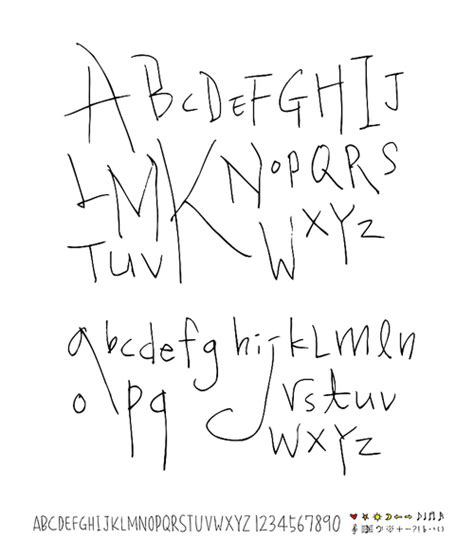 ABCDEFGHIJ
LMKNOPQRS
TUVWXYZ
abcdefghijkLmln
opqrstuv
wxyz
ABCDEFGHIJKLMNOPQRSTUVWXYZ 1234567890